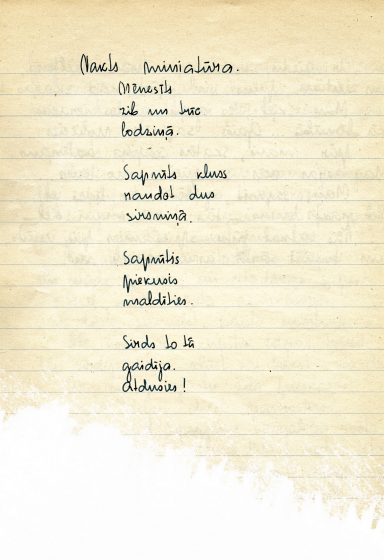 Nakts miniatūra.
Mēnestis
zib un trīc
lodziņā.
Sapnīts kluss
naudot dus
sirsniņā.
Sapnītis
piekusis
maldīties.
Sirds to tā
gaidīja.
Atdusies!